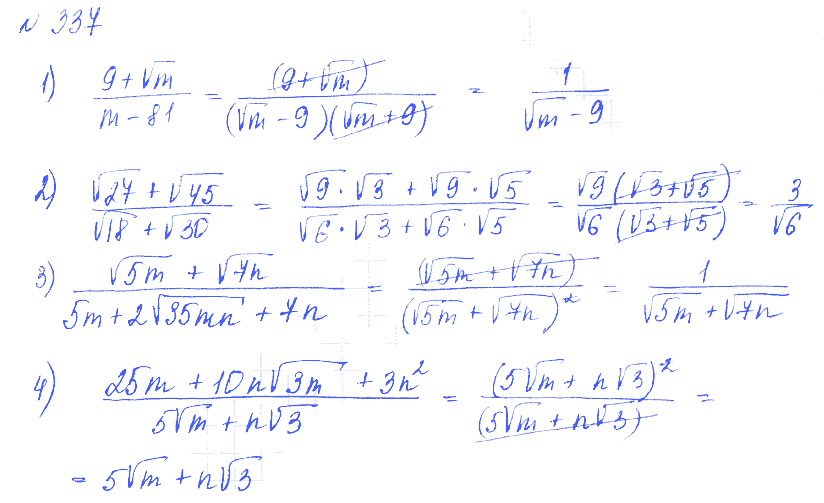 № 337
1) (9+√m)/(m−81) = (9+√m)/((√m−9)(√m+9)) = 1/(√m−9)
2) (√27+√45)/(√18+√30) = (√9·√3+√9·√5)/(√6·√3+√6·√5) = √9(√3+√5)/√6(√3+√5) = 3/√6
3) (√5m+√7n)/(5m+2√35mn+7n) = (√5m+√7n)/(√5m+√7n)² = 1/(√5m+√7n)
4) (25m+10n√3m+3n²)/(5√m+n√3) = (5√m+n√3)²/(5√m+n√3) =
= 5√m+n√3